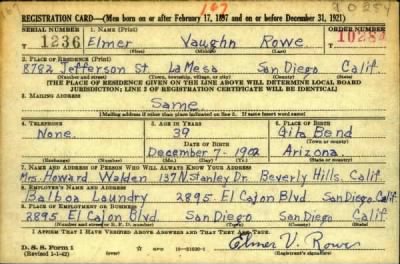 167
REGISTRATION CARD—(Men born on or after February 17, 1897 and on or before December 31, 1921)
SERIAL NUMBER 1. NAME (Print) ORDER NUMBER
T 1236 Elmer Vaughn Rowe
(First) (Middle) (Last)
2. PLACE OF RESIDENCE (Print)
8792 Jefferson St La Mesa San Diego Calif.
(Number and street) (Town, township, village, or city) (County) (State)
[THE PLACE OF RESIDENCE GIVEN ON THE LINE ABOVE WILL DETERMINE LOCAL BOARD
JURISDICTION; LINE 2 OF REGISTRATION CERTIFICATE WILL BE IDENTICAL]
3. MAILING ADDRESS
Same
[Mailing address if other than place indicated on line 2. If same insert word same]
4. TELEPHONE 5. AGE IN YEARS 6. PLACE OF BIRTH
None. 39 Gila Bend
DATE OF BIRTH (Town or county)
December 7-1902 Arizona
(Exchange) (Number) (Mo.) (Day) (Yr.) (State or country)
7. NAME AND ADDRESS OF PERSON WHO WILL ALWAYS KNOW YOUR ADDRESS
Mrs. Howard Walden 137 N. Stanley Dr. Beverly Hills, Calif.
8. EMPLOYER'S NAME AND ADDRESS
Balboa Laundry 2895 El Cajon Blvd San Diego. Calif
9. PLACE OF EMPLOYMENT OR BUSINESS
2895 El Cajon Blvd. San Diego San Diego Calif
(Number and street or R. F. D. number) (Town) (County) (State)
I AFFIRM THAT I HAVE VERIFIED ABOVE ANSWERS AND THAT THEY ARE TRUE.
D. S. S. Form 1
(Revised 1-1-42) Elmer V. Rowe
(Registrant's signature)